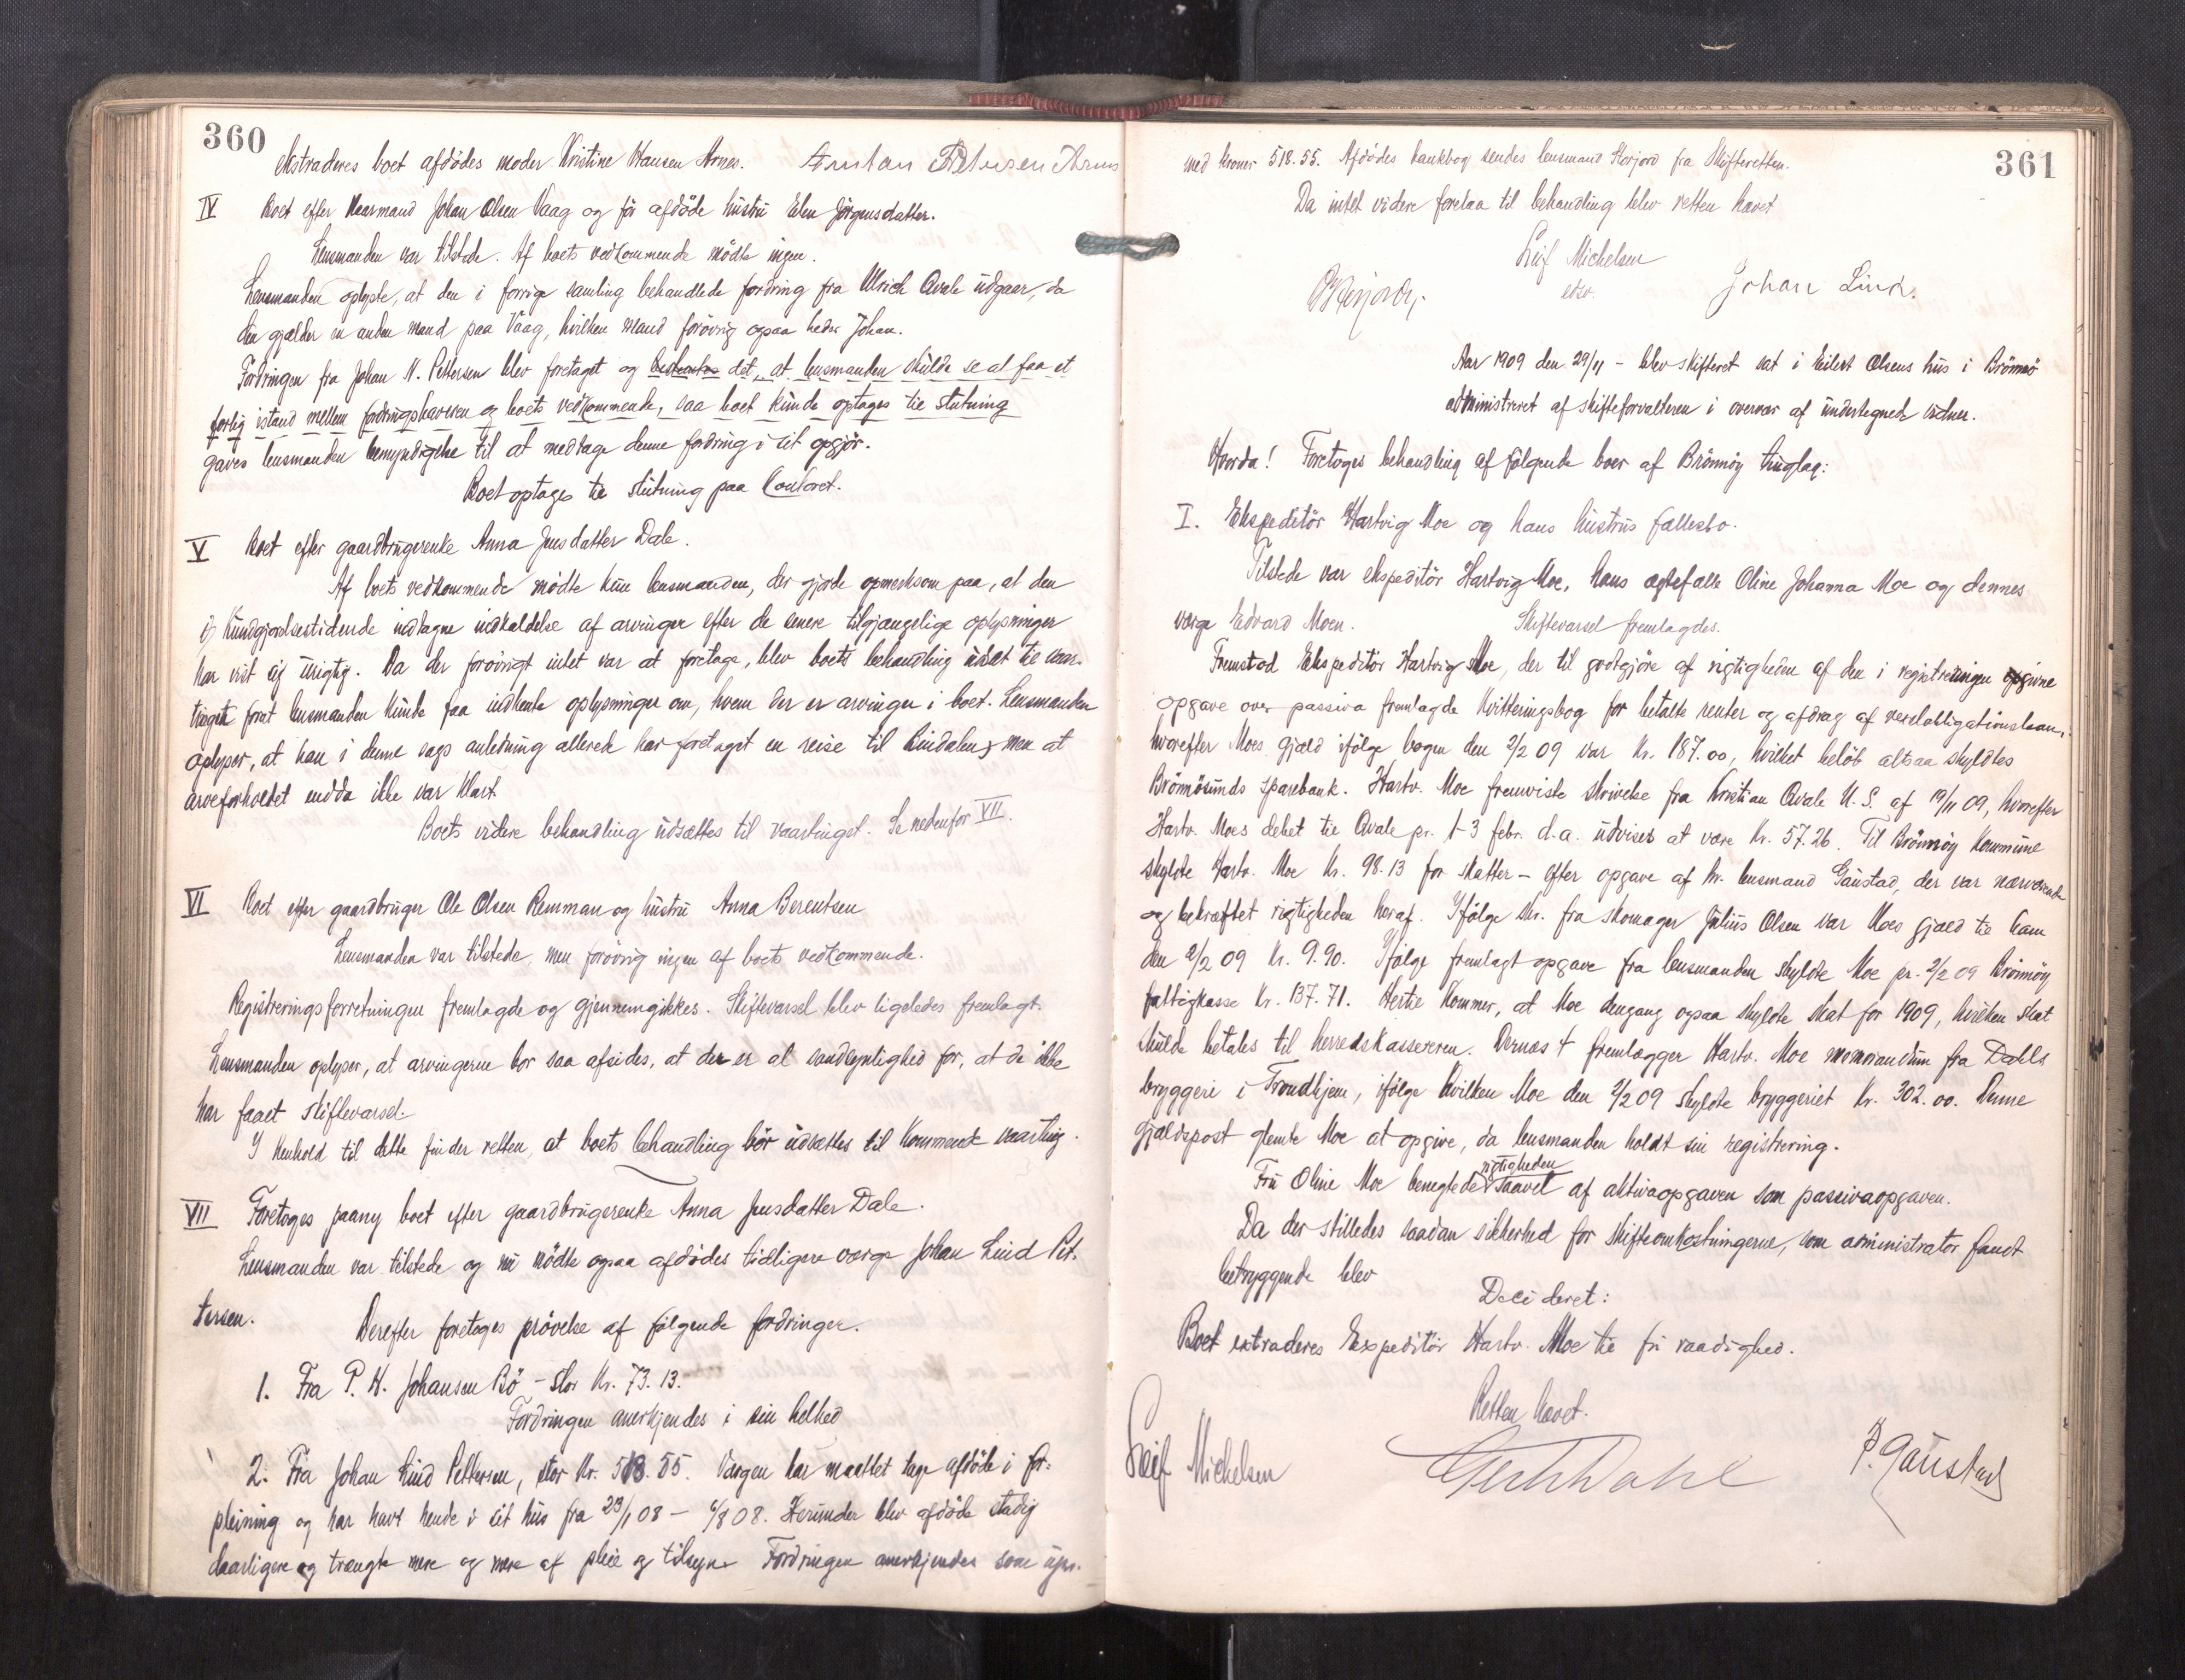 360
ekstraderes boet afdödes moder Kristine Hansen Arnes. Anton Petersen Arnes
IV Boet efter kaarmand Johan Olsen Vaag og för afdöde hustru Elen Jörgensdatter.
Lensmanden var tilstede. Af boets vedkommende mödte ingen.
Lensmanden oplyste, at den i forrige samling behandlede fordring fra Ulrich Qvale udgaar, da
den gjælder en anden mand paa Vaag, hvilken mand forövrig ogsaa heder Johan.
Fordringen fra Johan N. Pettersen blev foretaget og bestemtes det, at lensmanden skulde se at faa et
forlig istand mellem fordringshaveren og boets vedkommende, saa boet kunde optages til slutning
gaves lensmanden bemyndigelse til at medtage denne fordring i sit opgjör.
Boet optages til slutning paa Contoret.
V Boet efter gaardbrugerenke Anna Jensdatter Dale.
Af boets vedkommende mödte kun lensmanden, der gjorde opmerksom paa, at den
i Kundgjörelsestidende indtagne indkaldelse af arvinger efter de senere tilgjængelige oplysninger
har vist sig urigtig. Da der forövrigt intet var at foretage, blev boets behandling udsat til vaar-
tinget forat lensmanden kunde faa indhente oplysninger om, hvem der er arvinger i boet. Lensmanden
oplyser, at han i denne sags anledning allerede har foretaget en reise til Lindalen, men at
arveforholdet endda ikke var klart.
Boets videre behandling udsættes til vaartinget. Se nedenfor VII.
VI Boet efter gaardbruger Ole Olsen Remman og hustru Anna Berentsen
Lensmanden var tilstede, men forövrig ingen af boets vedkommende.
Registreringsforretningen fremlagde og gjennemgikkes. Skiftevarsel blev ligeledes fremlagt.
Lensmanden oplyser, at arvingerne bor saa afsides, at der er al sandsynlighed for, at de ikke
har faaet skiftevarsel.
I Henhold til dette finder retten, at boets behandling bör udsættes til kommende vaarting.
VII Foretoges paany boet efter gaardbrugerenke Anna Jensdatter Dale.
Lensmanden var tilstede og nu mödte ogsaa afdödes tidligere værge Johan Lind Pet-
tersen.
Derefter foretoges prövelse af fölgende fordringer.
1. Fra P. H. Johansen Bö – stor Kr. 73.13.
Fordringen anerkjendes i sin helhed
2. Fra Johan Lind Pettersen, stor Kr. 518.55. Værgen har maattet tage afdöde i for-
pleining og har havt hende i sit hus fra 23/1 08 – 6/8 08. Herunder blev afdöde stadig
daarligere og trængte mere og mere af pleie og tilsyn. Fordringen anerkjendes som upr.
361
med kroner 518.55. Afdödes bankbog sendes lensmand Horjord fra Skifteretten.
Da intet videre forelaa til behandling blev retten hævet
Leif Michelsen
edsv.
Johan Lind.
Aar 1909 den 29/11 – blev skifteret sat i Eilert Olsens hus i Brönnö
administreret af skifteforvalteren i overvær af undertegnede vidner.
Hvorda! Foretoges behandling af fölgende boer af Brönnöy tinglag:
I. Ekspeditör Hartvig Moe og hans hustrus fællesbo.
Tilstede var ekspeditör Hartvig Moe, hans ægtefælle Oline Johanna Moe og dennes
værge Edvard Moen. Skiftevarsel fremlagdes.
Fremstod Ekspeditör Hartvig Moe, der til godtgjöre af rigtigheden af den i registreringen opgivne
opgave over passiva fremlagde kvitteringsbog for betalte renter og afdrag af vexelobligationslaan,
hvorefter Moes gjæld ifölge bogen den 2/2 09 var Kr. 187.00, hvilket belöb altsaa skyldtes
Brönnösunds Sparebank. Hartv. Moe fremviste skrivelse fra Kristian Qvale U. S. af 19/11 09, hvorefter
Hartv. Moes debet til Qvale pr. 1-3 febr. d.a. udvises at være Kr. 57.26. Til Brönnöy Kommune
skyldte Hartv. Moe Kr. 98.13 for skatter – efter opgave af hr. lensmand Gaustad, der var nærværende
og bekræftet rigtigheden heraf. Ifölge skr. fra skomager Julius Olsen var Moes gjæld til ham
den 2/2 09 Kr. 9.90. Ifölge fremlagt opgave fra lensmanden skyldte Moe pr. 2/2 09 Brönnöy
fattigkasse Kr. 137.71. Hertil kommer, at Moe dengang ogsaa skyldte skat for 1909, hvilken skat
skulde betales til herredskassereren. Dernæst fremlægger Hartv. Moe memorandum fra Dalls
bryggeri i Trondhjem, ifölge hvilken Moe den 2/2 09 skyldte bryggeriet Kr. 302.00. Denne
gjældspost glemte Moe at opgive, da lensmanden holdt sin registrering.
Fru Oline Moe benegtede rigtigheden saavel af aktivaopgaven som passivaopgaven.
Da der stilledes saadan sikkerhed for skifteomkostningerne, som administrator fandt
betryggende blev
Decideret:
Boet extraderes Expeditör Hartv. Moe til fri raadighed.
Retten hævet.
Leif Michelsen
P. Gaustad